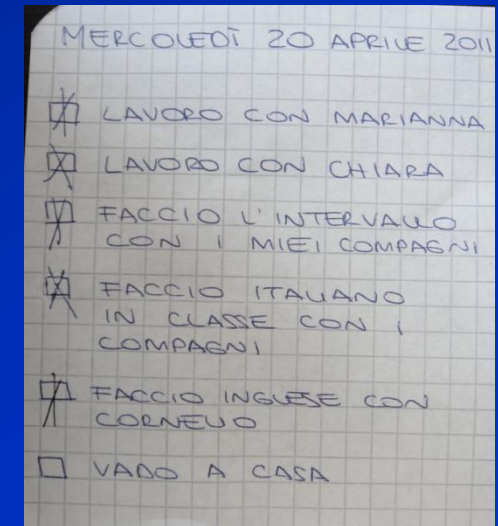 MERCOLEDÌ 20 APRILE 2011
LAVORO CON MARIANNA
LAVORO CON CHIARA
FACCIO L'INTERVALLO
CON I MIEI COMPAGNI
FACCIO ITALIANO
IN CLASSE CON I
COMPAGNI
FACCIO INGLESE CON
CORNELIO
VADO A CASA